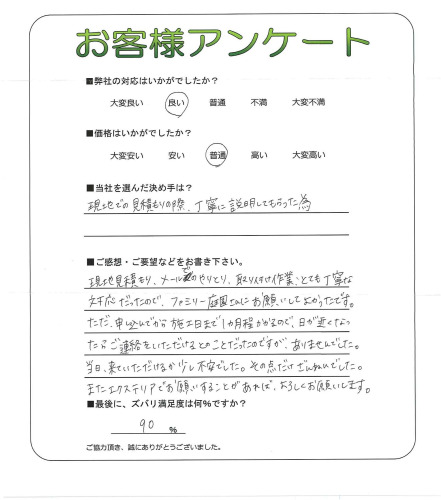 お客様アンケート
■弊社の対応はいかがでしたか？
大変良い 良い 普通 不満 大変不満
■価格はいかがでしたか？
大変安い 安い 普通 高い 大変高い
■当社を選んだ決め手は？
現地での見積もりの際、丁寧に説明してもらった為
■ご感想・ご要望などをお書き下さい。
現地見積もり、メールでのやりとり、取り付け作業、とても丁寧な
対応だったので、ファミリー庭園さんにお願いしてよかったです。
ただ、申込んでから施工日まで1カ月程かかるので、日が近くなっ
たらご連絡をいただけるとのことだったのですが、ありませんでした。
当日、来ていただけるか少し不安でした。その点だけざんねんでした。
またエクステリアでお願いすることがあれば、よろしくお願いします。
■最後に、ズバリ満足度は何%ですか？
90 %
ご協力頂き、誠にありがとうございました。